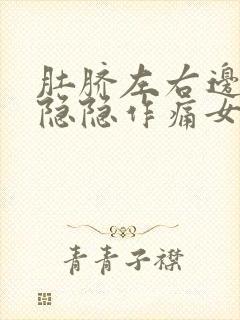 肚脐左右邊
隐隐作痛女
青青子襟